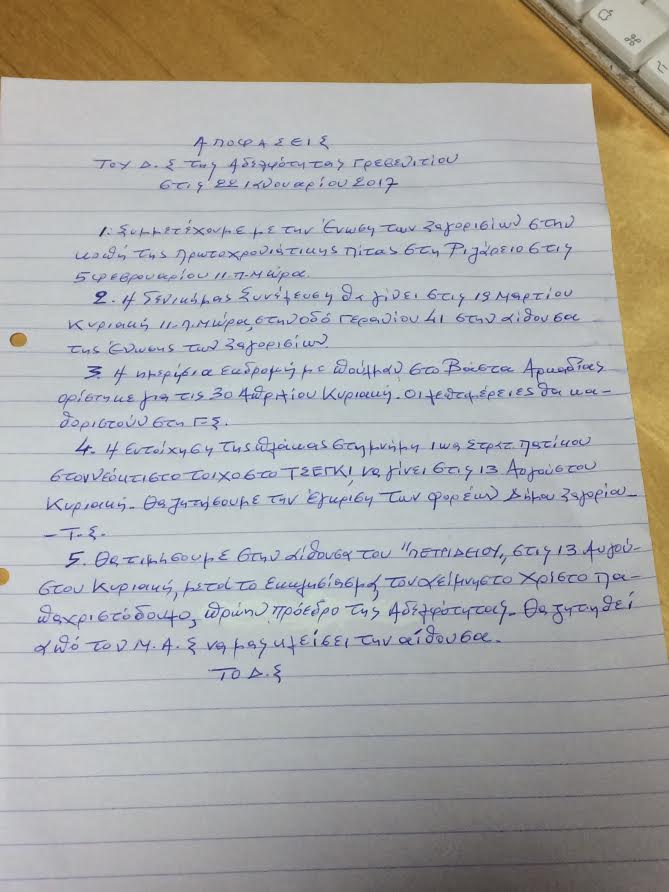 ΑΠΟΦΑΣΕΙΣ
Του Δ.Σ της Αδελφότητας Γρεβενιτίου
στις 22 Ιανουαρίου 2017
1. Συμμετέχουμε με την Ένωση των Ζαγορισίων στην
κοπή της Πρωτοχρονιάτικης Πίτας στη Ριζάρειο στις
5 Φεβρουαρίου 11 π.μ ώρα.
2. Η Γενική μας Συνέλευση θα γίνει στις 19 Μαρτίου
Κυριακή 11 π.μ ώρα, στην οδό Γερανίου 41 στην αίθουσα
της Ένωσης των Ζαγορισίων.
3. Η ημερήσια εκδρομή με πούλμαν στο Βάστα Αρκαδίας
ορίστηκε για τις 30 Απριλίου Κυριακή. Οι λεπτομέρειες θα κα-
θοριστούν στη Γ.Σ.
4. Η εντοίχηση της πλάκας στη μνήμη Στρατ. Πατίκου
στον νεόκτιστο τοίχο στο ΤΣΕΓΚΙ, να γίνει στις 13 Αυγούστου
Κυριακή. Θα ζητήσουμε την έγκριση των φορέων Δήμου Ζαγορίου -
- Τ.Σ.
5. Θα τιμήσουμε στην αίθουσα του "ΠΕΤΡΙΔΕΙΟΥ", στις 13 Αυγού-
στου Κυριακή, μετά το εκκλησίασμα, τον αείμνηστο Χρίστο Πα-
παχριστόδουλο, πρώην πρόεδρο της Αδελφότητας. Θα ζητηθεί
από τον Μ.Α.Σ να μας κλείσει την αίθουσα.
ΤΟ Δ.Σ